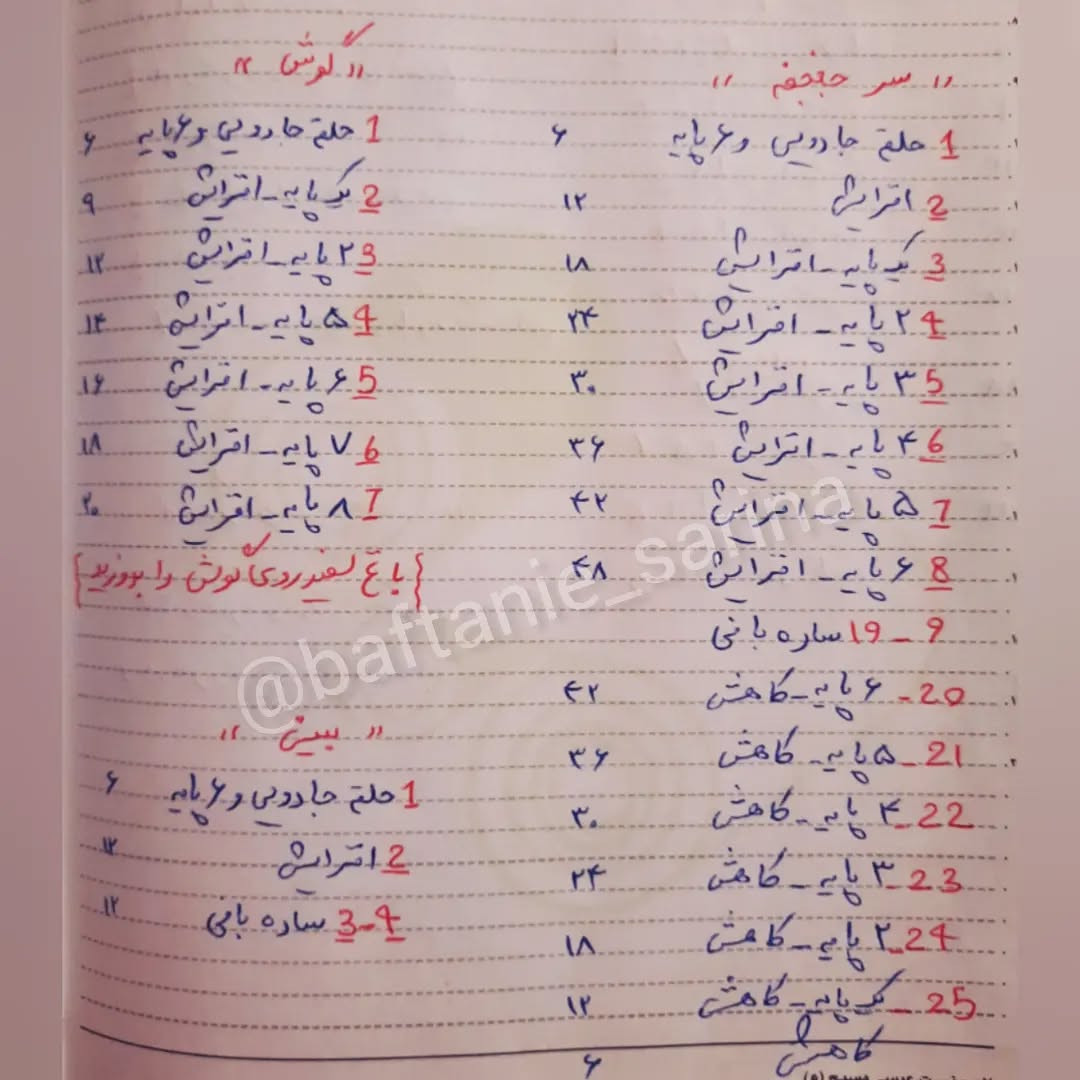 " سر جغجغه "
1 حلقه جادویی و ۶ پایه ۶
2 افزایش ۱۲
3 یک پایه - افزایش ۱۸
4 ۲ پایه - افزایش ۲۴
5 ۳ پایه - افزایش ۳۰
6 ۴ پایه - افزایش ۳۶
7 ۵ پایه - افزایش ۴۲
8 ۶ پایه - افزایش ۴۸
9 - 19 ساده بافی
20 - ۶ پایه - کاهش ۴۲
21 - ۵ پایه - کاهش ۳۶
22 - ۴ پایه - کاهش ۳۰
23 - ۳ پایه - کاهش ۲۴
24 - ۲ پایه - کاهش ۱۸
25 - یک پایه - کاهش ۱۲
کاهش ۶
" گوش "
1 حلقه جادویی و ۶ پایه ۶
2 یک پایه - افزایش ۹
3 ۲ پایه - افزایش ۱۲
4 ۵ پایه - افزایش ۱۴
5 ۶ پایه - افزایش ۱۶
6 ۷ پایه - افزایش ۱۸
7 ۸ پایه - افزایش ۲۰
{با نخ سفید روی گوش را بدوزید}
" بینی "
1 حلقه جادویی و ۶ پایه ۶
2 افزایش ۱۲
3-4 ساده بافی ۱۲
@baftanie_sarina